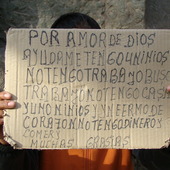 POR AMOR DE DIOS
AYUDAME TENGO 4 NINIOS
NO TENGO TRABAJO BUSCO
TRABAJO NO TENGO CASA
Y UNO NINIOS Y NEFERMO DE
CORAZON NO TENGO DINERO Y
COMER Y
MUCHAS GRASIAS